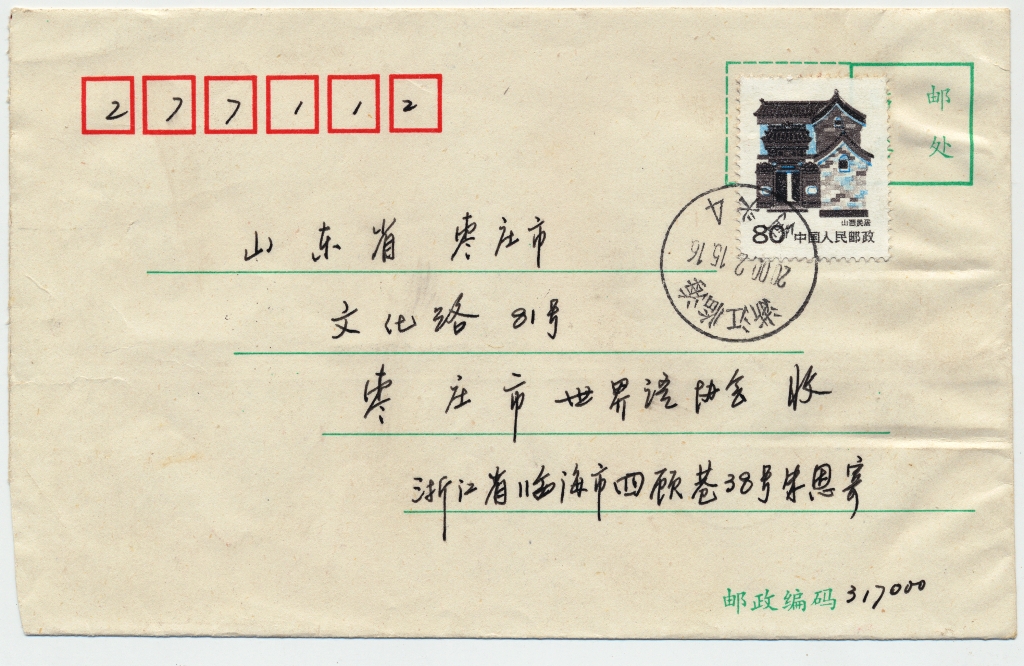 277112
邮
处
山西民居
80 中国人民邮政
浙江临海
2000.2.15.16
山东省 枣庄市
文化路 81号
枣庄市世界语协会 收
浙江省临海市四顾巷38号朱恩寄
邮政编码 317000